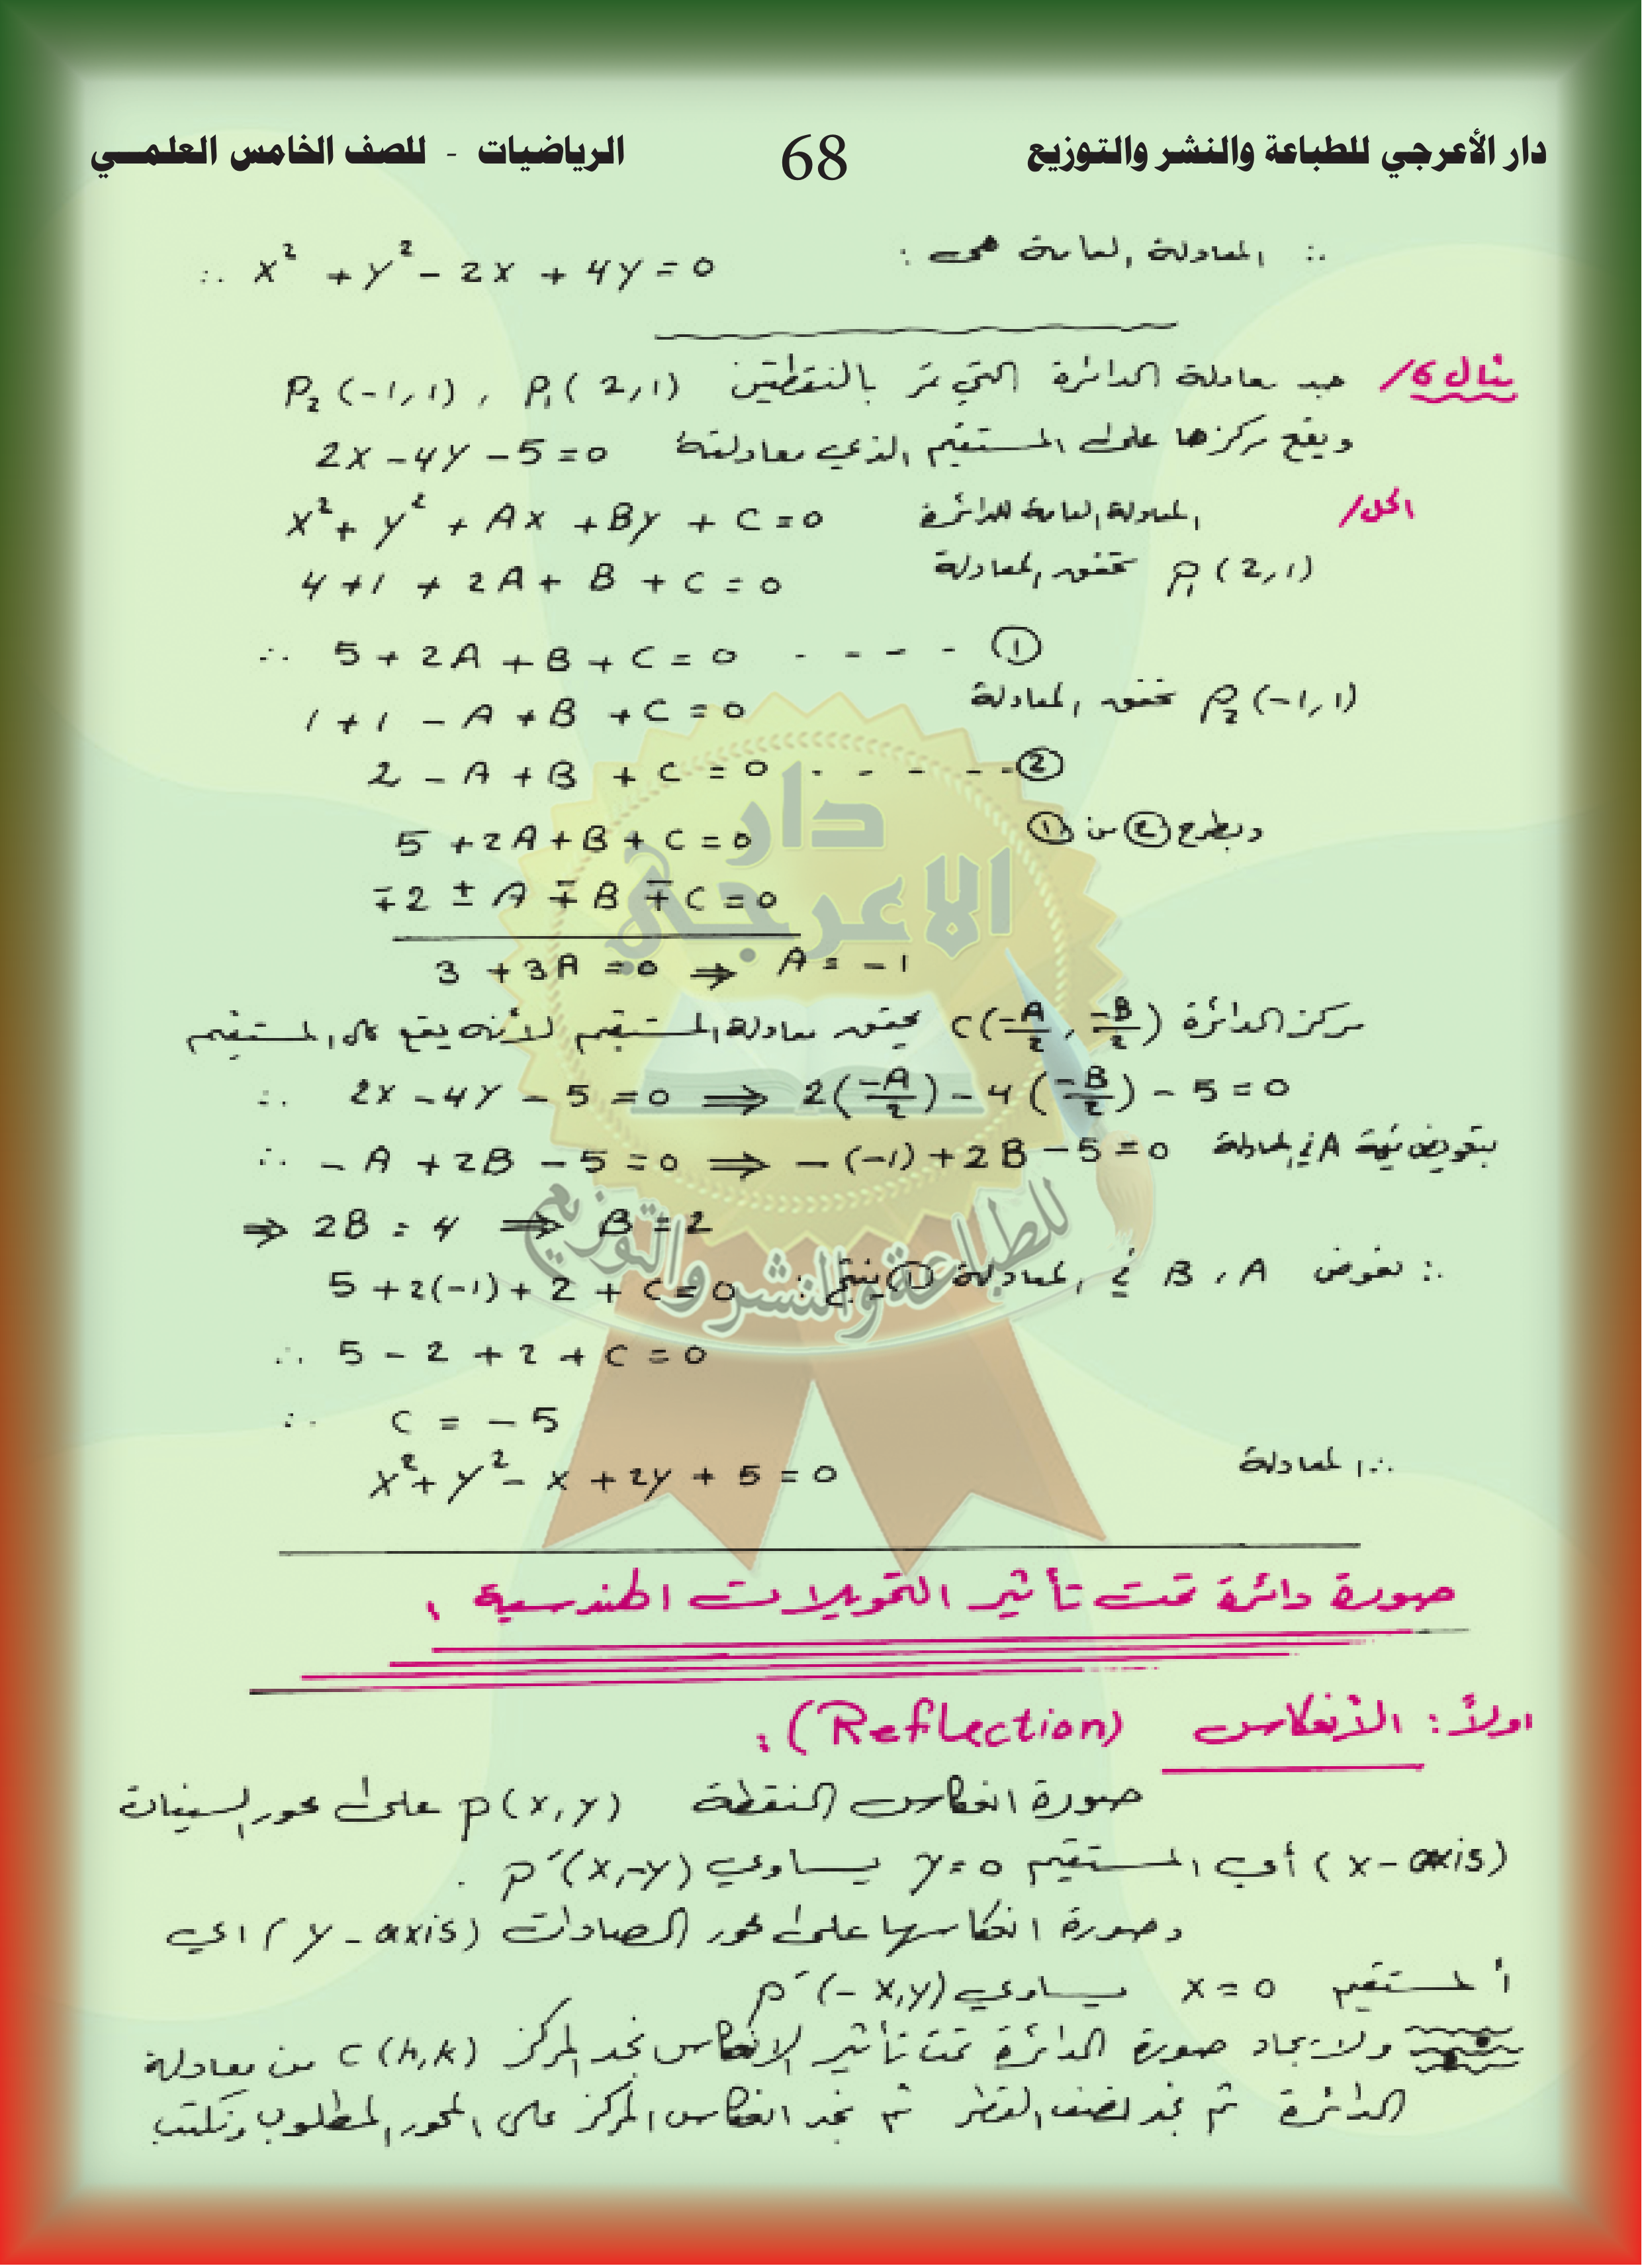 دار الأعرجي للطباعة والنشر والتوزيع 68 الرياضيات - للصف الخامس العلمـــي
∴ المعادلة العامة هي : x² + y² - 2x + 4y = 0 ∴
مثال 6/ جد معادلة الدائرة التي تمر بالنقطتين P₂(-1,1) , P₁(2,1)
ويقع مركزها على المستقيم الذي معادلته 2x - 4y - 5 = 0
الحل/ المعادلة العامة للدائرة x² + y² + Ax + By + C = 0
P₁(2,1) تحقق المعادلة 4 + 1 + 2A + B + C = 0
∴ 5 + 2A + B + C = 0 - - - - ①
P₂(-1,1) تحقق المعادلة 1 + 1 - A + B + C = 0
2 - A + B + C = 0 - - - - - ②
وبطرح ② من ① 5 + 2A + B + C = 0
∓2 ± A ∓ B ∓ C = 0
3 + 3A = 0 ⇒ A = -1
مركز الدائرة C(-A/2, -B/2) يحقق معادلة المستقيم لأنه يقع على المستقيم
∴ 2x - 4y - 5 = 0 ⇒ 2(-A/2) - 4(-B/2) - 5 = 0
∴ -A + 2B - 5 = 0 ⇒ -(-1) + 2B - 5 = 0 بتعويض قيمة A في المعادلة
⇒ 2B = 4 ⇒ B = 2
∴ نعوض B , A في المعادلة ① ينتج : 5 + 2(-1) + 2 + C = 0
∴ 5 - 2 + 2 + C = 0
∴ C = -5
∴ المعادلة x² + y² - x + 2y + 5 = 0
صورة دائرة تحت تأثير التحويلات الهندسية :
اولاً : الأنعكاس (Reflection) :
صورة انعكاس النقطة p(x,y) على محور السينات
(x-axis) أي المستقيم y=0 يساوي p′(x,-y) .
وصورة انعكاسها على محور الصادات (y-axis) اي
ألمستقيم x=0 يساوي p′(-x,y)
ولايجاد صورة الدائرة تحت تأثير الانعكاس نجد المركز C(h,k) من معادلة
الدائرة ثم نجد نصف القطر ثم نجد انعكاس المركز على المحور المطلوب ونكتب
دار
الاعرجي
للطباعة والنشر والتوزيع